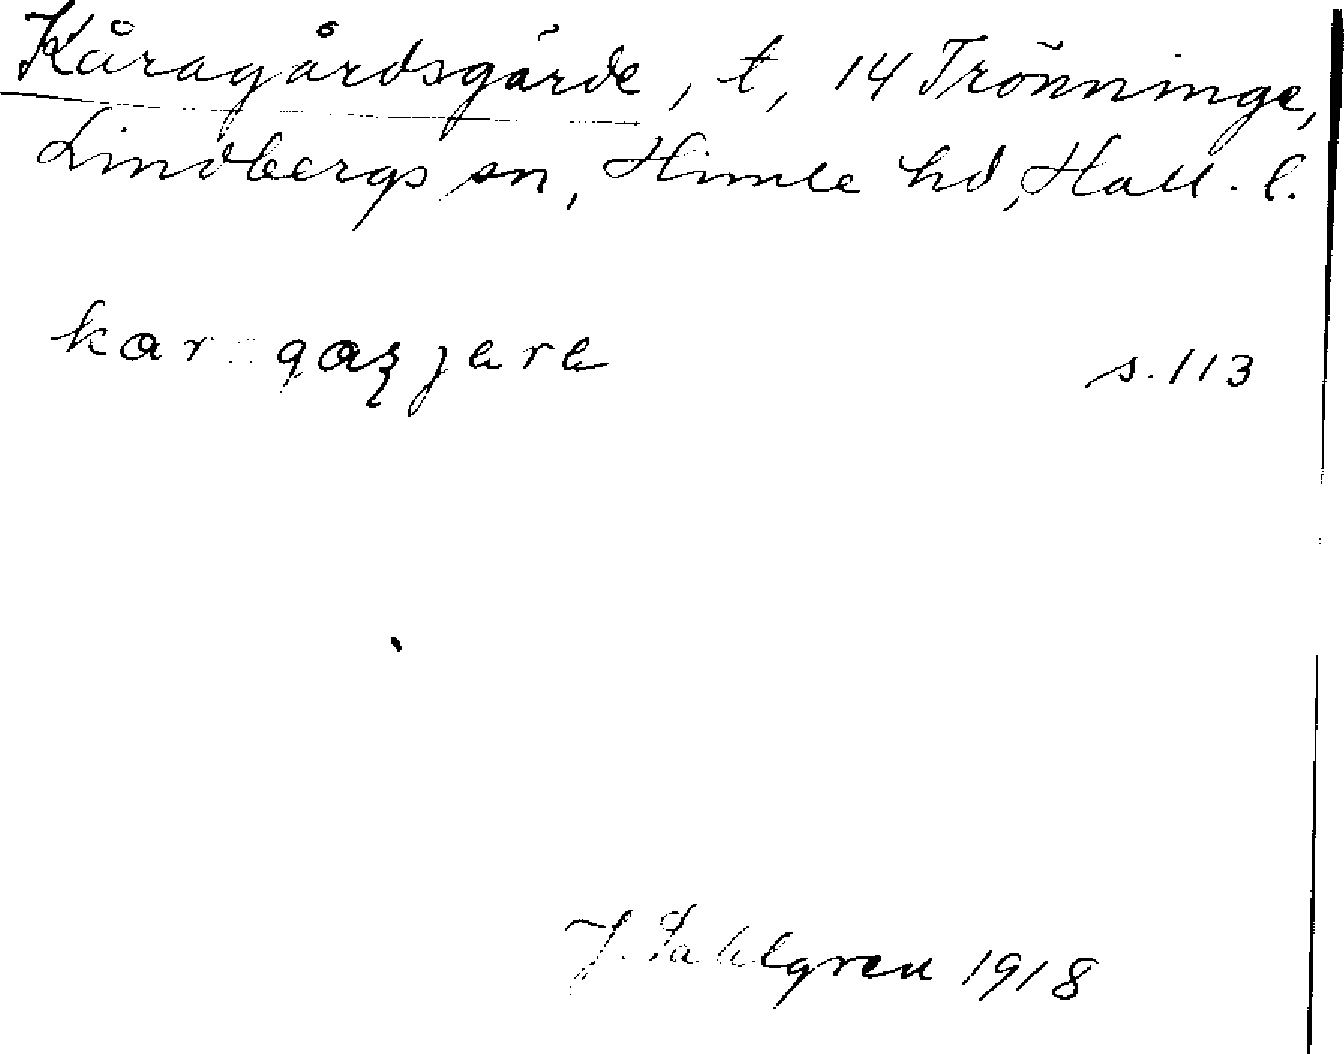 Kåragårdsgärde, t, 14 Trönninge,
Lindbergs sn, Himle hd, Hall. l.
s. 113
J. Sahlgren 1918